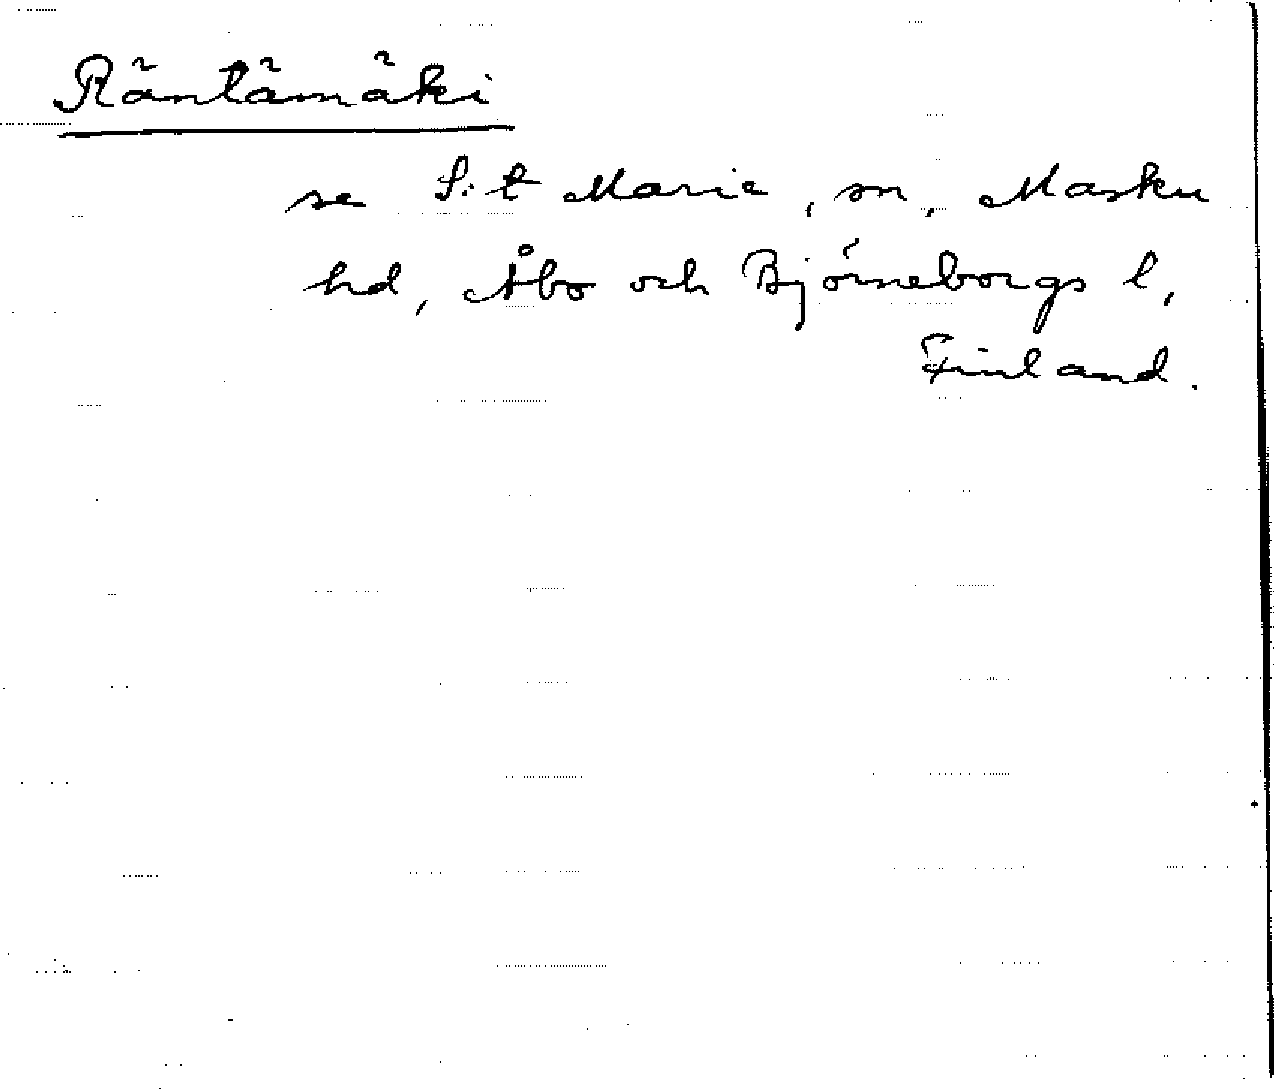 Räntämäki
se S:t Marie, sn, Masku
hd, Åbo och Björneborgs l,
Finland.